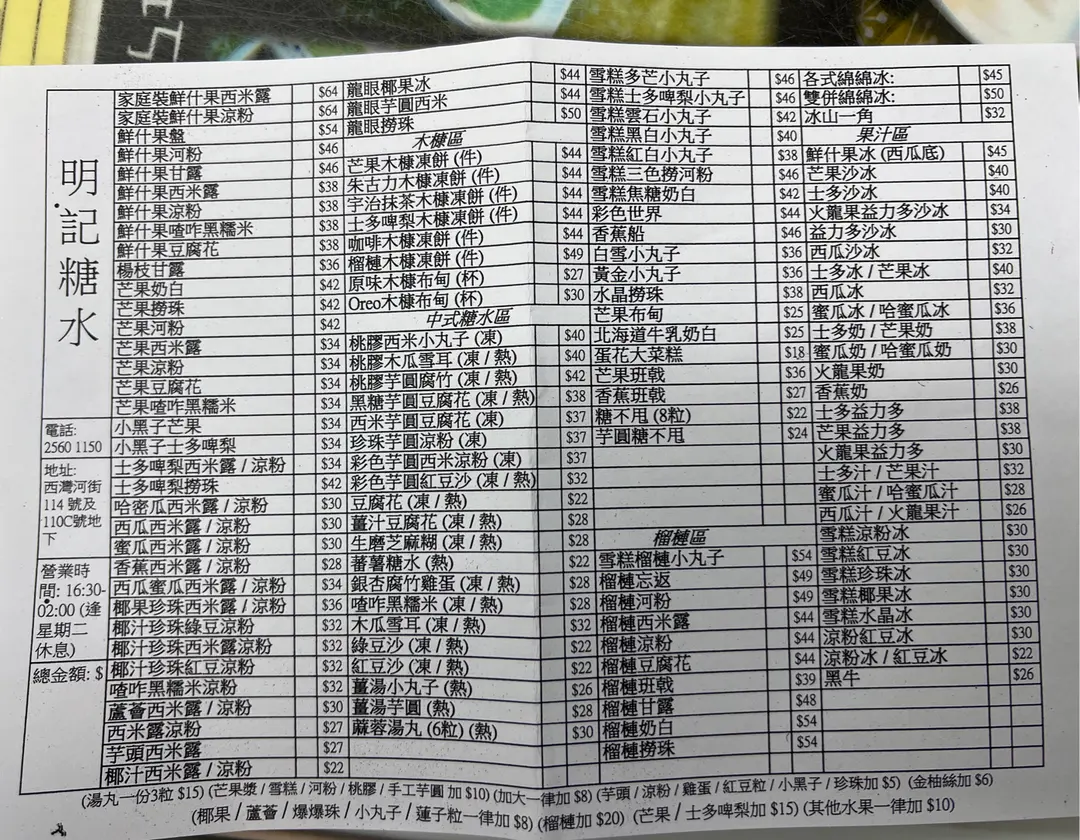 明記糖水
電話:
2560 1150
地址:
西灣河街
114 號及
110C號地
下
營業時
間: 16:30-
02:00 (逢
星期二
休息)
總金額: $
家庭裝鮮什果西米露 $64
家庭裝鮮什果涼粉 $64
鮮什果盤 $54
鮮什果河粉 $46
鮮什果甘露 $46
鮮什果西米露 $38
鮮什果涼粉 $38
鮮什果喳咋黑糯米 $38
鮮什果豆腐花 $38
楊枝甘露 $36
芒果奶白 $42
芒果撈珠 $42
芒果河粉 $42
芒果西米露 $34
芒果涼粉 $34
芒果豆腐花 $34
芒果喳咋黑糯米 $34
小黑子芒果 $34
小黑子士多啤梨 $34
士多啤梨西米露 / 涼粉 $34
士多啤梨撈珠 $42
哈密瓜西米露 / 涼粉 $30
西瓜西米露 / 涼粉 $30
蜜瓜西米露 / 涼粉 $30
香蕉西米露 / 涼粉 $28
西瓜蜜瓜西米露 / 涼粉 $34
椰果珍珠西米露 / 涼粉 $36
椰汁珍珠綠豆涼粉 $32
椰汁珍珠西米露涼粉 $32
椰汁珍珠紅豆涼粉 $32
喳咋黑糯米涼粉 $32
蘆薈西米露 / 涼粉 $30
西米露涼粉 $27
芋頭西米露 $27
椰汁西米露 / 涼粉 $22
龍眼椰果冰 $44
龍眼芋圓西米 $44
龍眼撈珠 $50
木糠區
芒果木糠凍餅 (件) $44
朱古力木糠凍餅 (件) $44
宇治抹茶木糠凍餅 (件) $44
士多啤梨木糠凍餅 (件) $44
咖啡木糠凍餅 (件) $44
榴槤木糠凍餅 (件) $49
原味木糠布甸 (杯) $27
Oreo木糠布甸 (杯) $30
中式糖水區
桃膠西米小丸子 (凍) $40
桃膠木瓜雪耳 (凍 / 熱) $40
桃膠芋圓腐竹 (凍 / 熱) $42
黑糖芋圓豆腐花 (凍 / 熱) $38
西米芋圓豆腐花 (凍) $37
珍珠芋圓涼粉 (凍) $37
彩色芋圓西米涼粉 (凍) $37
彩色芋圓紅豆沙 (凍 / 熱) $32
豆腐花 (凍 / 熱) $22
薑汁豆腐花 (凍 / 熱) $28
生磨芝麻糊 (凍 / 熱) $28
蕃薯糖水 (熱) $22
銀杏腐竹雞蛋 (凍 / 熱) $28
喳咋黑糯米 (凍 / 熱) $28
木瓜雪耳 (凍 / 熱) $32
綠豆沙 (凍 / 熱) $22
紅豆沙 (凍 / 熱) $22
薑湯小丸子 (熱) $26
薑湯芋圓 (熱) $28
蔴蓉湯丸 (6粒) (熱) $30
雪糕多芒小丸子 $46
雪糕士多啤梨小丸子 $46
雪糕雲石小丸子 $42
雪糕黑白小丸子 $40
雪糕紅白小丸子 $38
雪糕三色撈河粉 $46
雪糕焦糖奶白 $42
彩色世界 $44
香蕉船 $46
白雪小丸子 $36
黃金小丸子 $36
水晶撈珠 $38
芒果布甸 $25
北海道牛乳奶白 $25
蛋花大菜糕 $18
芒果班戟 $36
香蕉班戟 $27
糖不甩 (8粒) $22
芋圓糖不甩 $24
榴槤區
雪糕榴槤小丸子 $54
榴槤忘返 $49
榴槤河粉 $49
榴槤西米露 $44
榴槤涼粉 $44
榴槤豆腐花 $44
榴槤班戟 $39
榴槤甘露 $48
榴槤奶白 $54
榴槤撈珠 $54
各式綿綿冰: $45
雙併綿綿冰: $50
冰山一角 $32
果汁區
鮮什果冰 (西瓜底) $45
芒果沙冰 $40
士多沙冰 $40
火龍果益力多沙冰 $34
益力多沙冰 $30
西瓜沙冰 $32
士多冰 / 芒果冰 $40
西瓜冰 $32
蜜瓜冰 / 哈蜜瓜冰 $36
士多奶 / 芒果奶 $38
蜜瓜奶 / 哈蜜瓜奶 $30
火龍果奶 $30
香蕉奶 $26
士多益力多 $38
芒果益力多 $38
火龍果益力多 $30
士多汁 / 芒果汁 $32
蜜瓜汁 / 哈蜜瓜汁 $28
西瓜汁 / 火龍果汁 $26
雪糕涼粉冰 $30
雪糕紅豆冰 $30
雪糕珍珠冰 $30
雪糕椰果冰 $30
雪糕水晶冰 $30
涼粉紅豆冰 $30
涼粉冰 / 紅豆冰 $22
黑牛 $26
(湯丸一份3粒 $15) (芒果漿 / 雪糕 / 河粉 / 桃膠 / 手工芋圓 加 $10) (加大一律加 $8) (芋頭 / 涼粉 / 雞蛋 / 紅豆粒 / 小黑子 / 珍珠加 $5) (金柚絲加 $6)
(椰果 / 蘆薈 / 爆爆珠 / 小丸子 / 蓮子粒一律加 $8) (榴槤加 $20) (芒果 / 士多啤梨加 $15) (其他水果一律加 $10)